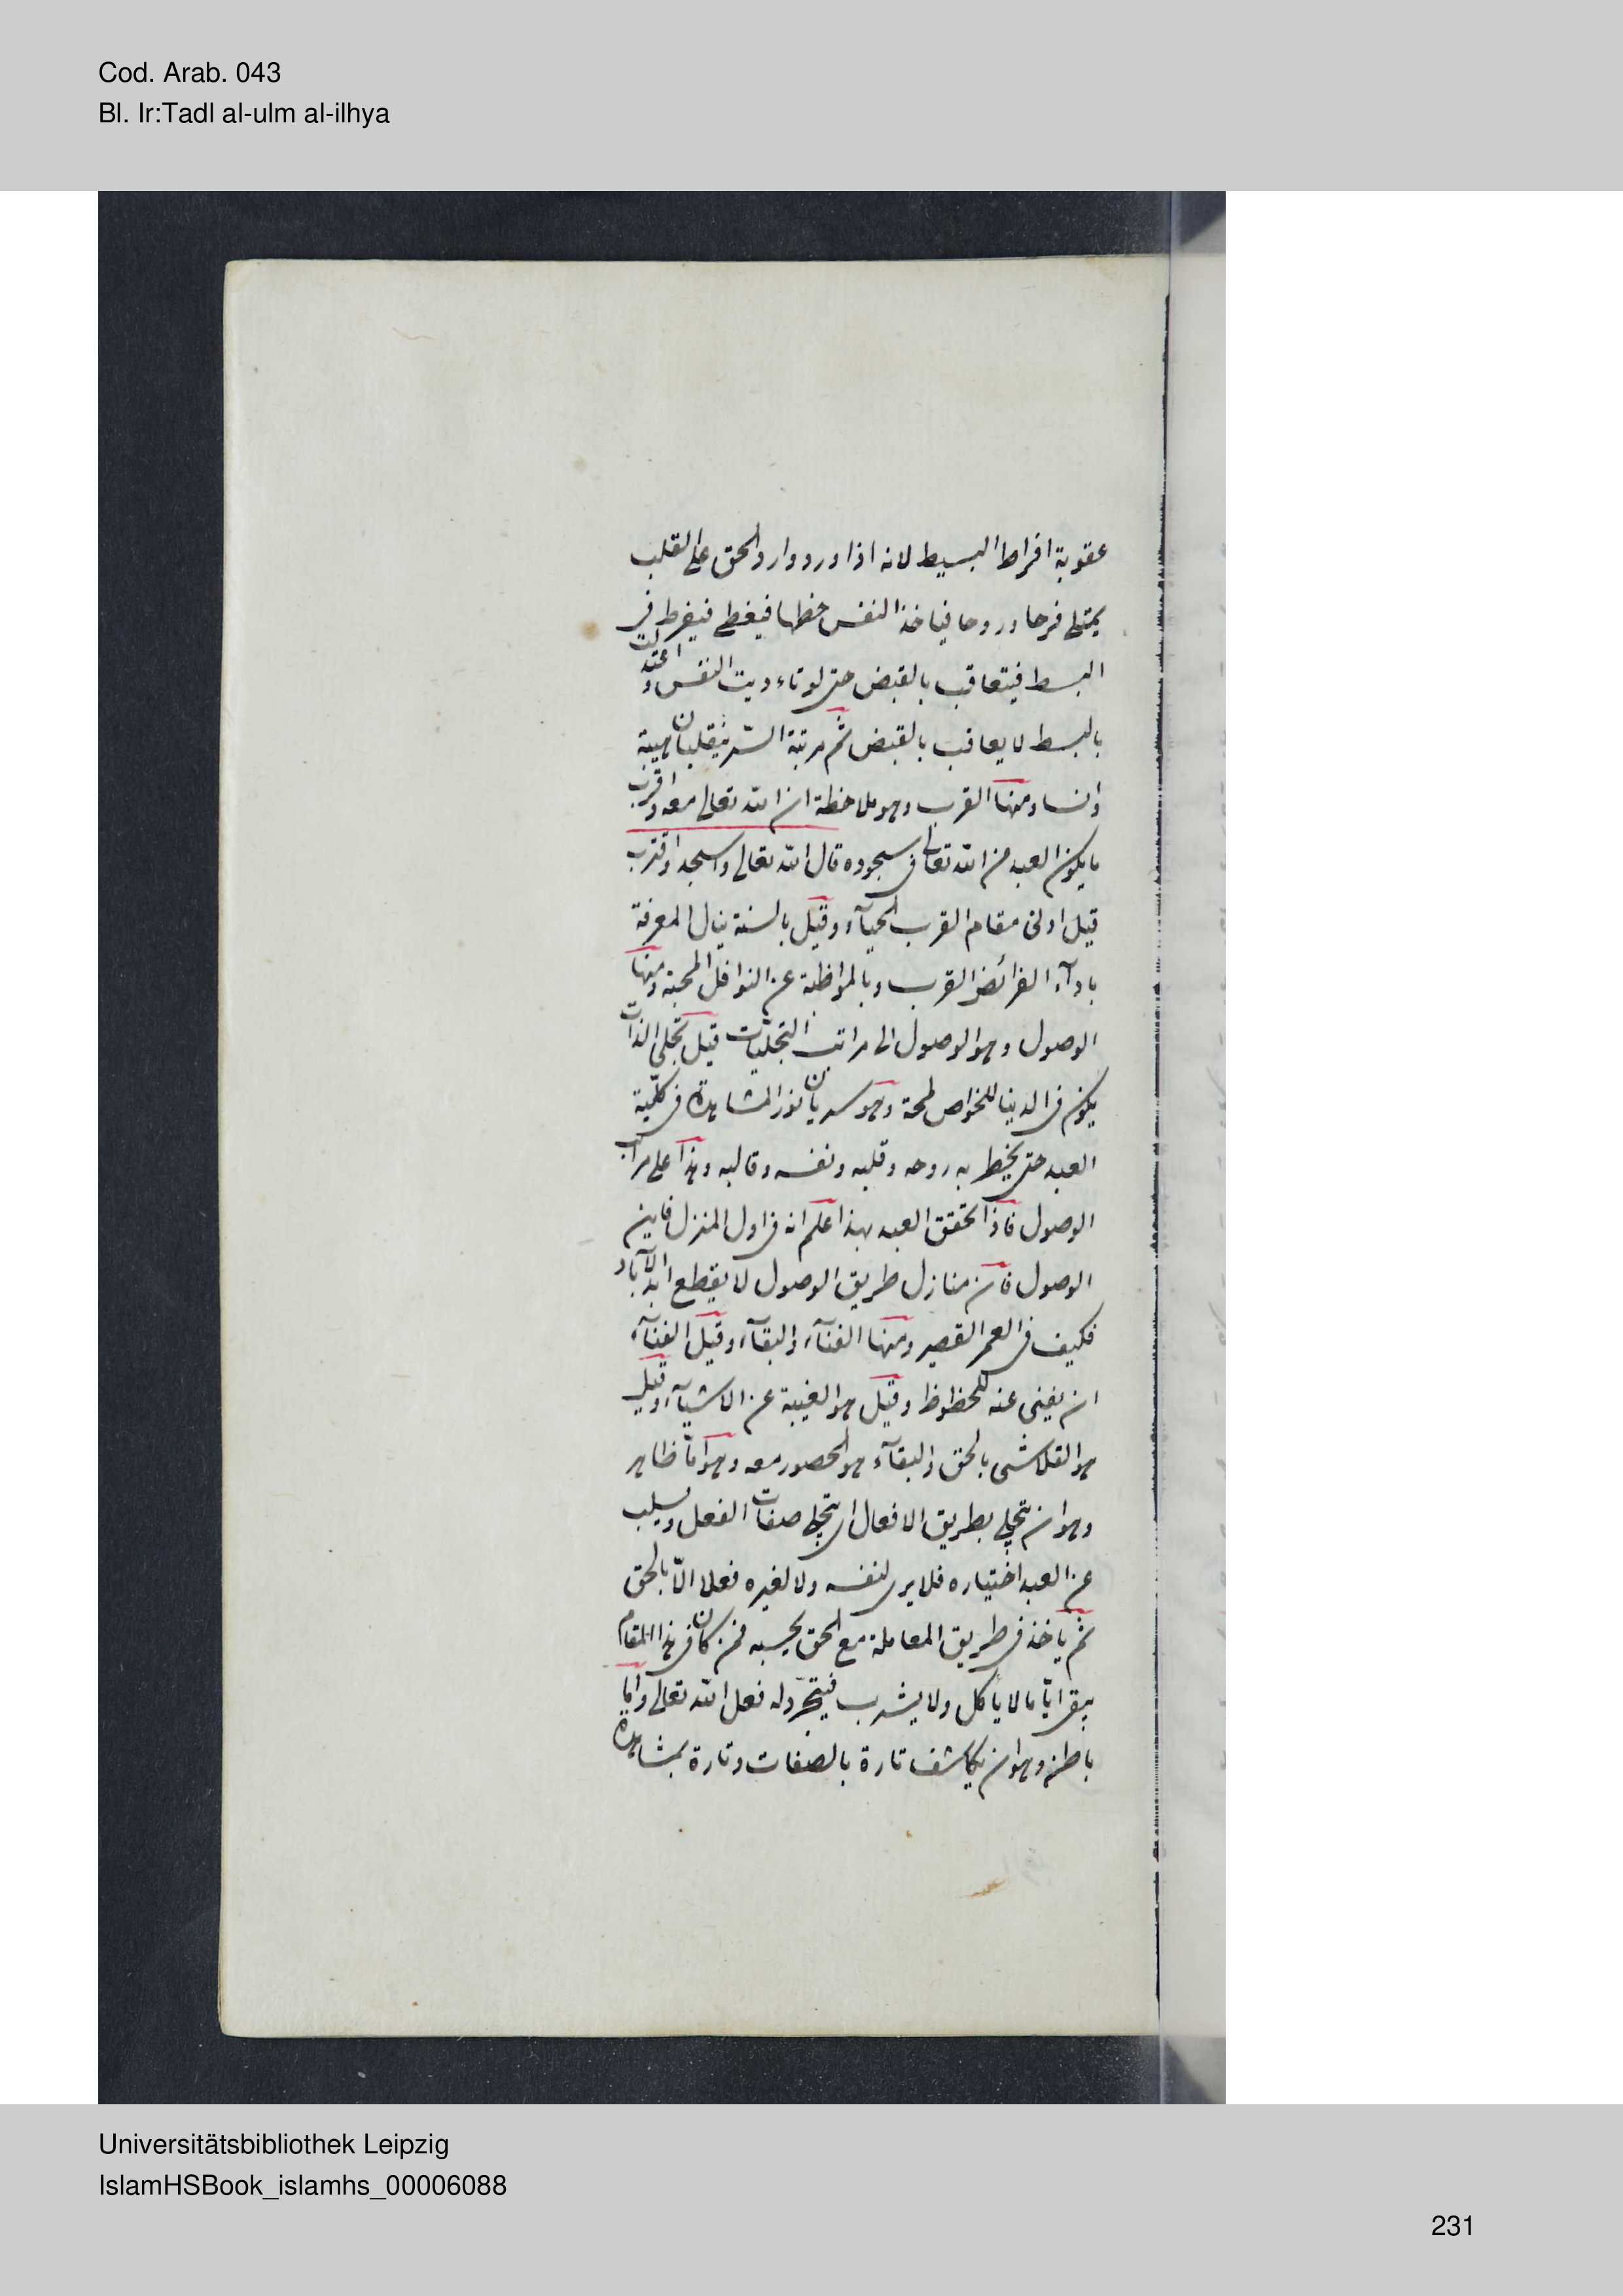 Cod. Arab. 043
Bl. Ir:Tadl al-ulm al-ilhya
عقوبة افراط البسيط لانه اذا ورد وارد الحق على القلب
يمتلى فرحا وروحا فياخذ النفس حظها فيغطى فيفرط فى
البسط فيتعاقب بالقبض حتى لو تاءدبت النفس واعتدلت
بالبسط لا يعاقب بالقبض ثم مرتبة السّر ينقلبان هيبة
وانسا ومنها القرب وهو ملاحظة ان الله تعالى معه واقرب
ما يكون العبد من الله تعالى فى سجوده قال الله تعالى واسجد واقترب
قيل ادنى مقام القرب الحيآء وقيل بالسنة ينال المعرفة
بادآء الفرائض القرب وبالمواظبة عن النوافل المحبة ومنها
الوصول وهو الوصول الى مراتب التجلّيات قيل تجلى الذات
يكون فى الدينا للخواص لمحة وهو سريان نور المشاهدة فى كلّية
العبد حتى يخيط به روحه وقلبه ونفسه وقالبه وهذا على مراتب
الوصول فاذا تحقق العبد بهذا علم انه فى اول المنزل فاين
الوصول فان منازل طريق الوصول لا يقطع ابد الآباد
فكيف فى العمر القصير ومنها الفنآء والبقآء وقيل الفنآء
ان يفنى عنه للحظوظ وقيل هو الغيبة عن الاشيآء وقيل
هو التلاشى بالحق والبقآء هو الحضور معه وهو امّا ظاهر
وهو ان يتجلى بطريق الافعال اى يتجلى صفات الفعل ويسلب
عن العبد اختياره فلا يرى لنفسه ولا لغيره فعلا الاّ بالحق
ثم ياخذ فى طريق المعاملة مع الحق بحسبه فمن كان فى هذا المقام
يبقى ايّاما لا ياكل ولا يشرب فيتجرّد له فعل الله تعالى وامّا
باطن وهو ان يكاشف تارة بالصفات وتارة بمشاهدة
Universitätsbibliothek Leipzig
IslamHSBook_islamhs_00006088
231